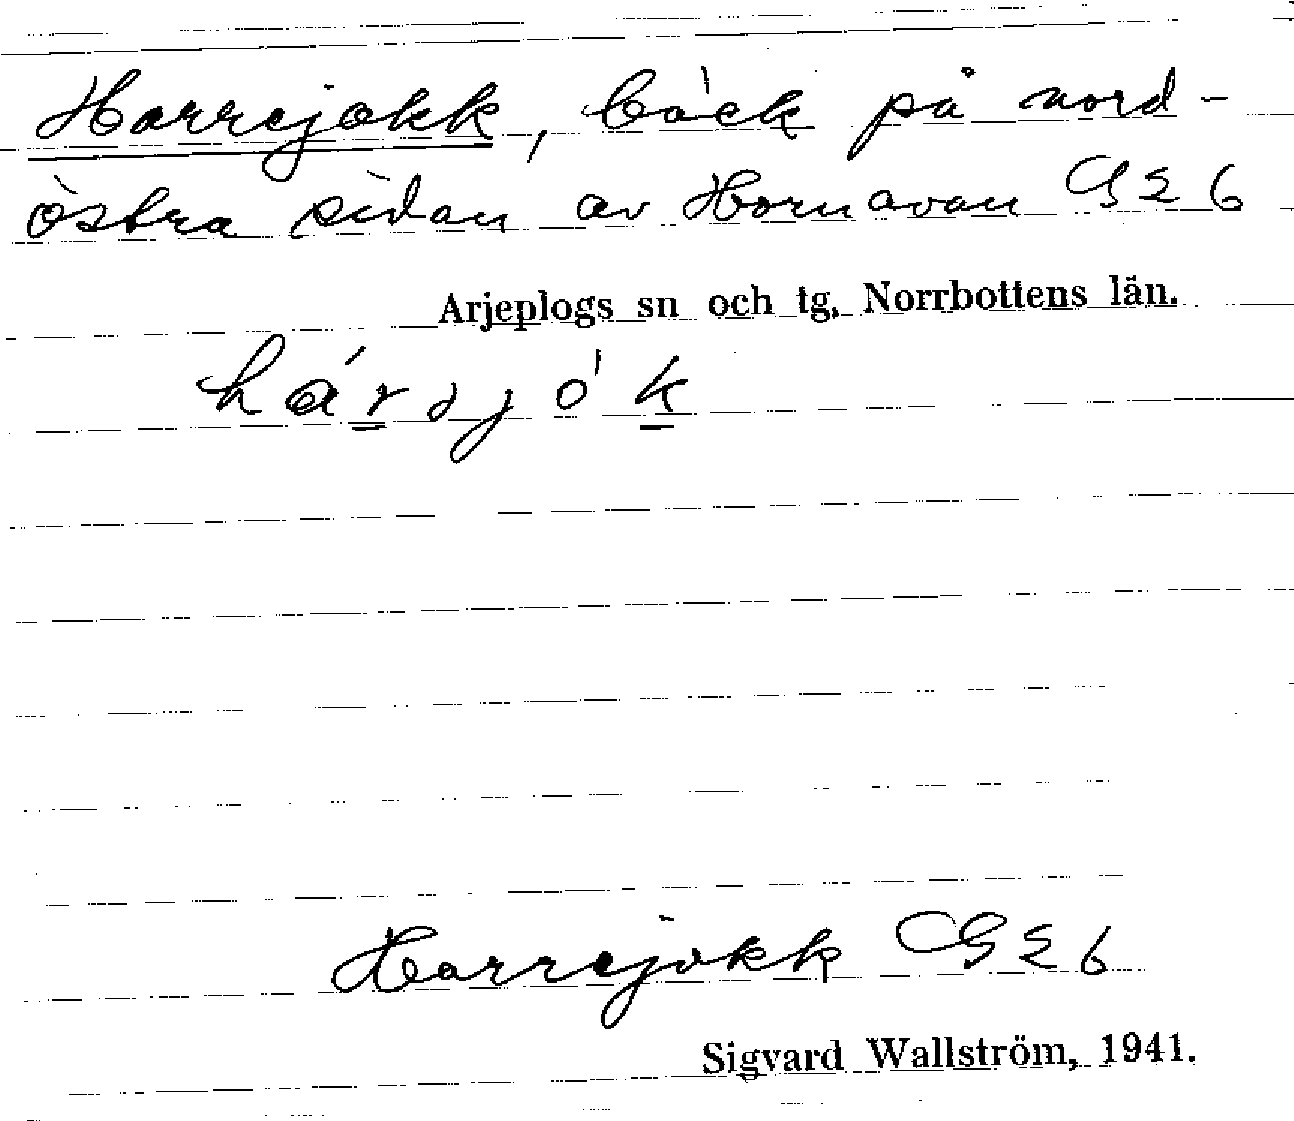 Harrejokk, bäck på nord-
östra sidan av Hornavan GΣ6
Arjeplogs sn och tg, Norrbottens län.
Harrejokk GΣ6
Sigvard Wallström, 1941.